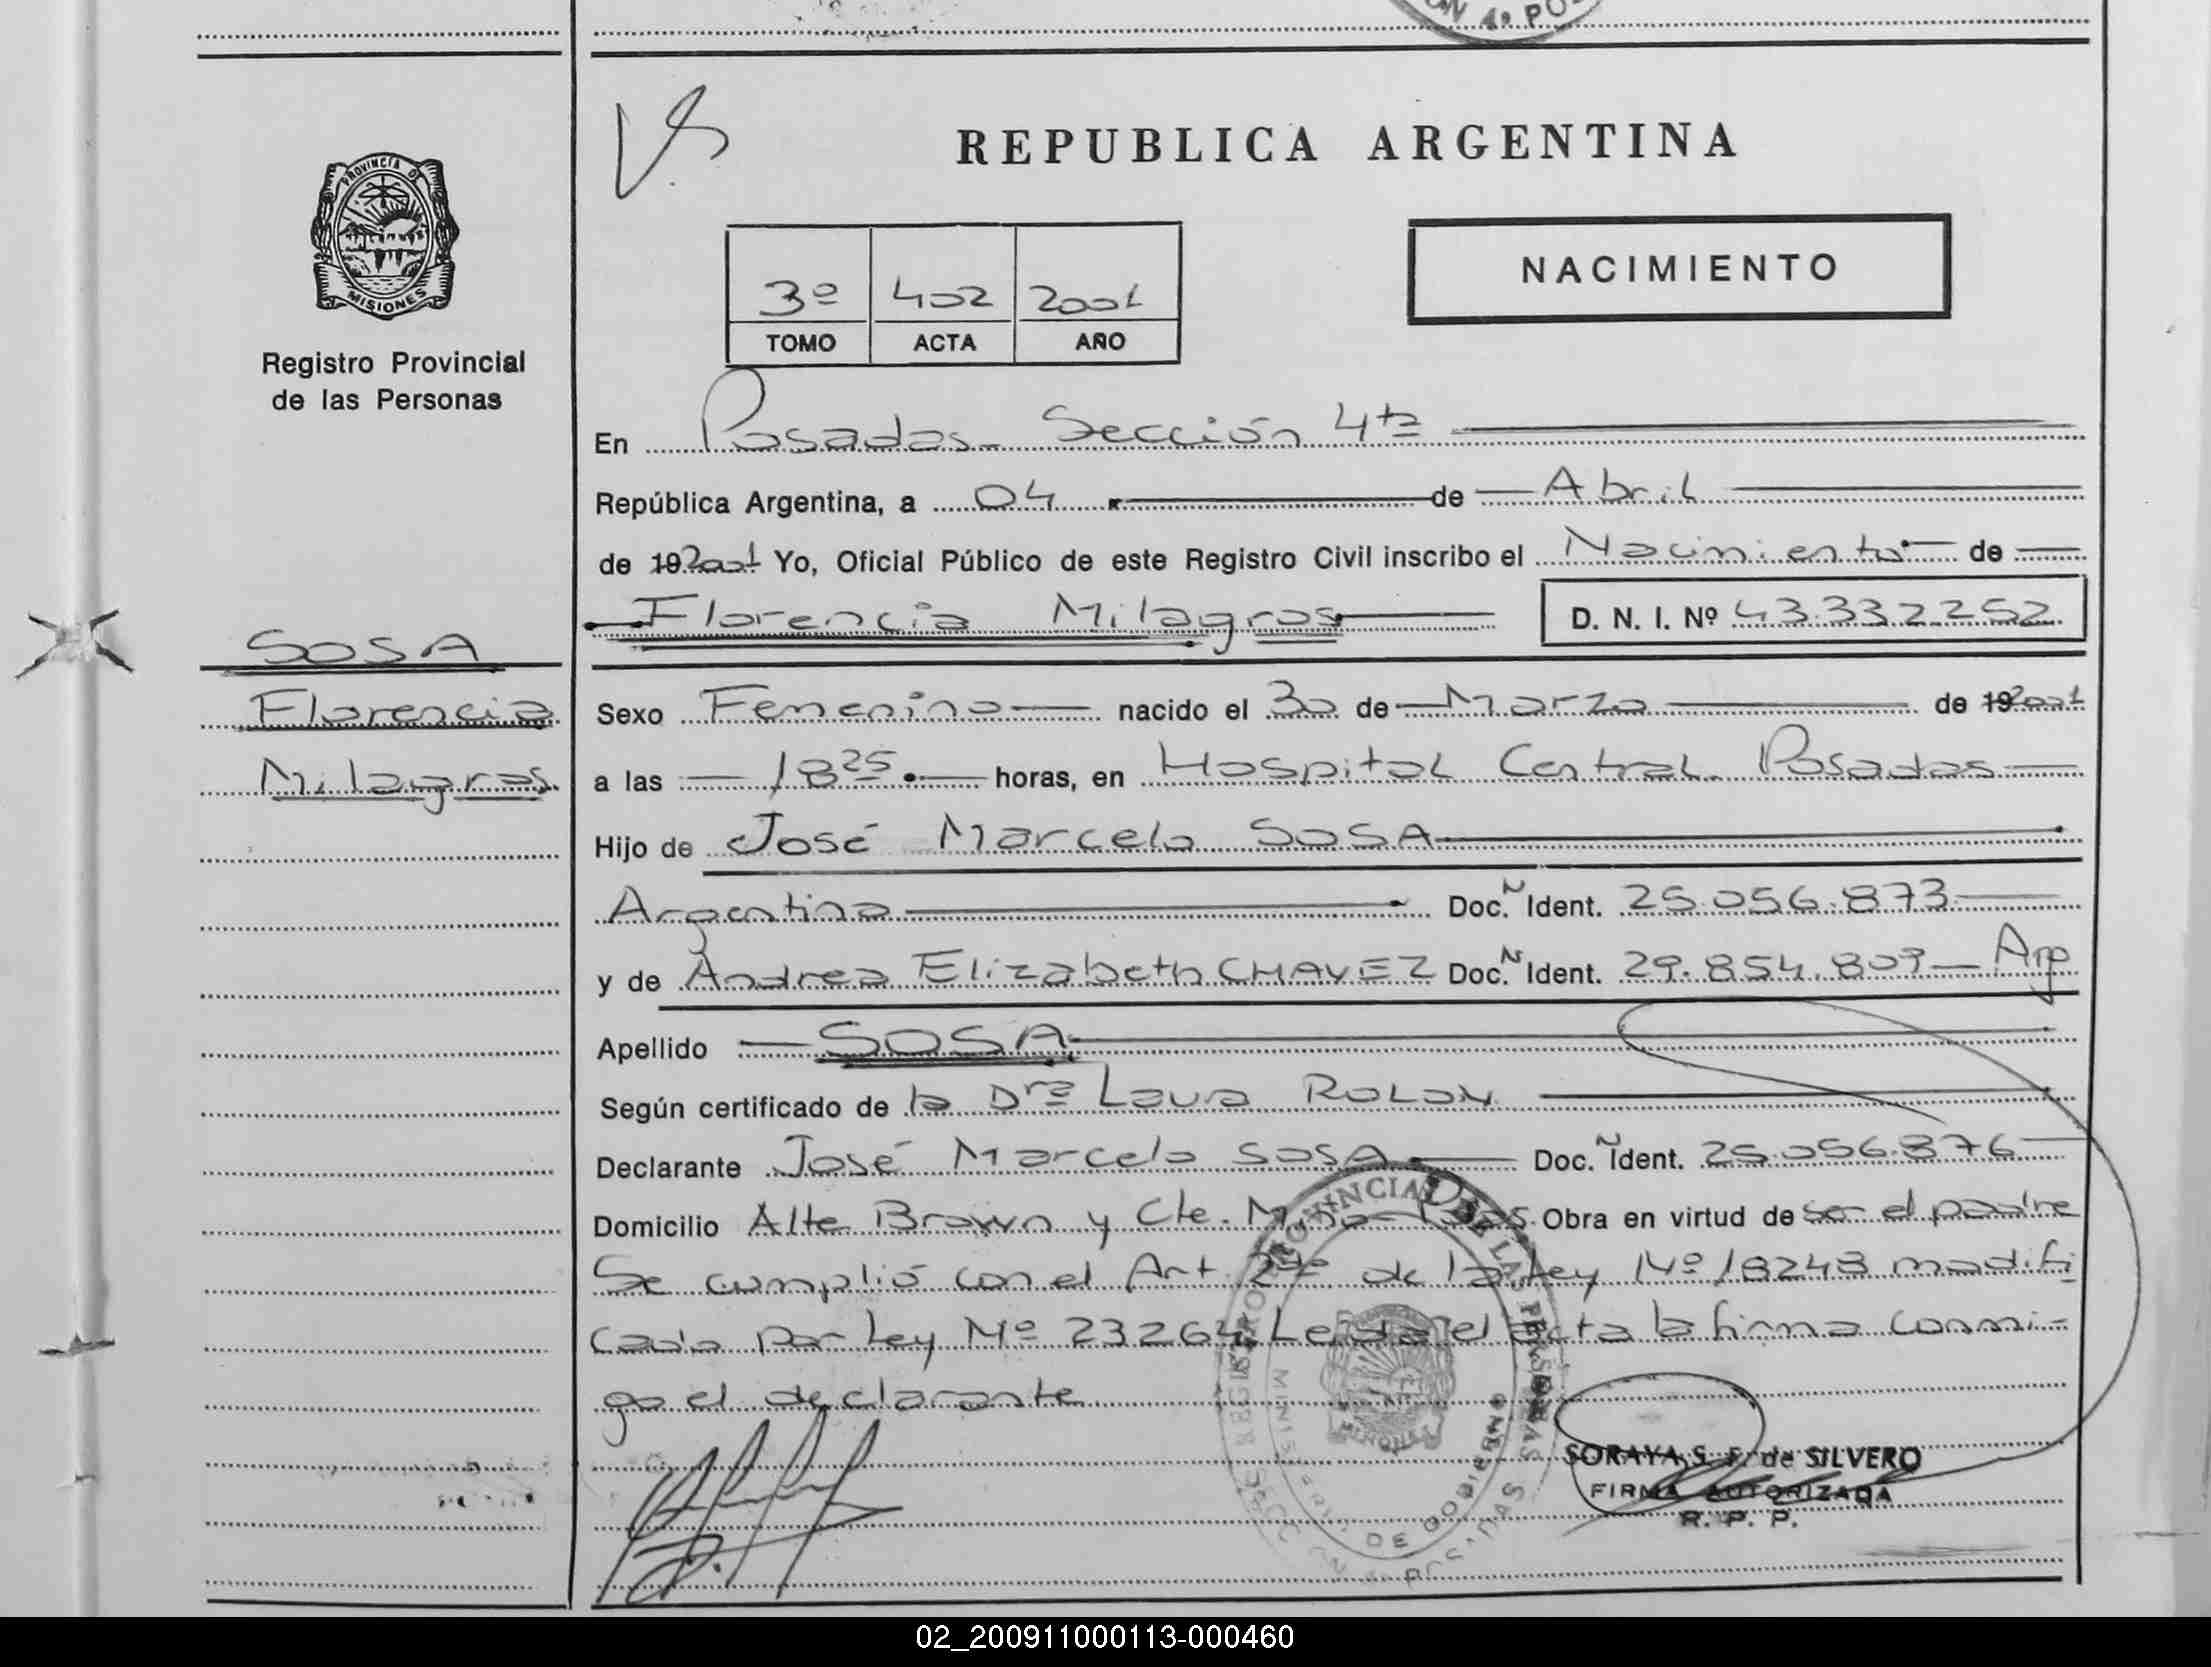 ON 4º POS
REPUBLICA ARGENTINA
PROVINCIA DE
MISIONES
Registro Provincial
de las Personas
3º 402 2001
TOMO ACTA AÑO
NACIMIENTO
En Posadas Sección 4ta
República Argentina, a 04 de Abril
de 192001 Yo, Oficial Público de este Registro Civil inscribo el Nacimiento de
Florencia Milagros D. N. I. Nº 43.332.252
SOSA
Florencia
Milagros
Sexo Femenino nacido el 30 de Marzo de 192001
a las 18 25 horas, en Hospital Central. Posadas
Hijo de José Marcelo SOSA
Argentina Doc. Ident. 25.056.873
y de Andrea Elizabeth CHAVEZ Doc. Ident. 29.854.809 Arg
Apellido SOSA
Según certificado de la Dra Laura ROLON
Declarante José Marcelo SOSA Doc. Ident. 25.056.876
Domicilio Alte Brown y Cte. Obra en virtud de ser el padre
Se cumplió con el Art. de la Ley Nº 18248 modifi
cada por Ley Nº 23264 Leida el acta la firma conmi-
go el declarante
REGISTRO PROVINCIAL DE LAS PERSONAS
MINISTERIO DE GOBIERNO
SORAYA S. F. de SILVERO
FIRMA AUTORIZADA
R. P. P.
02_200911000113-000460